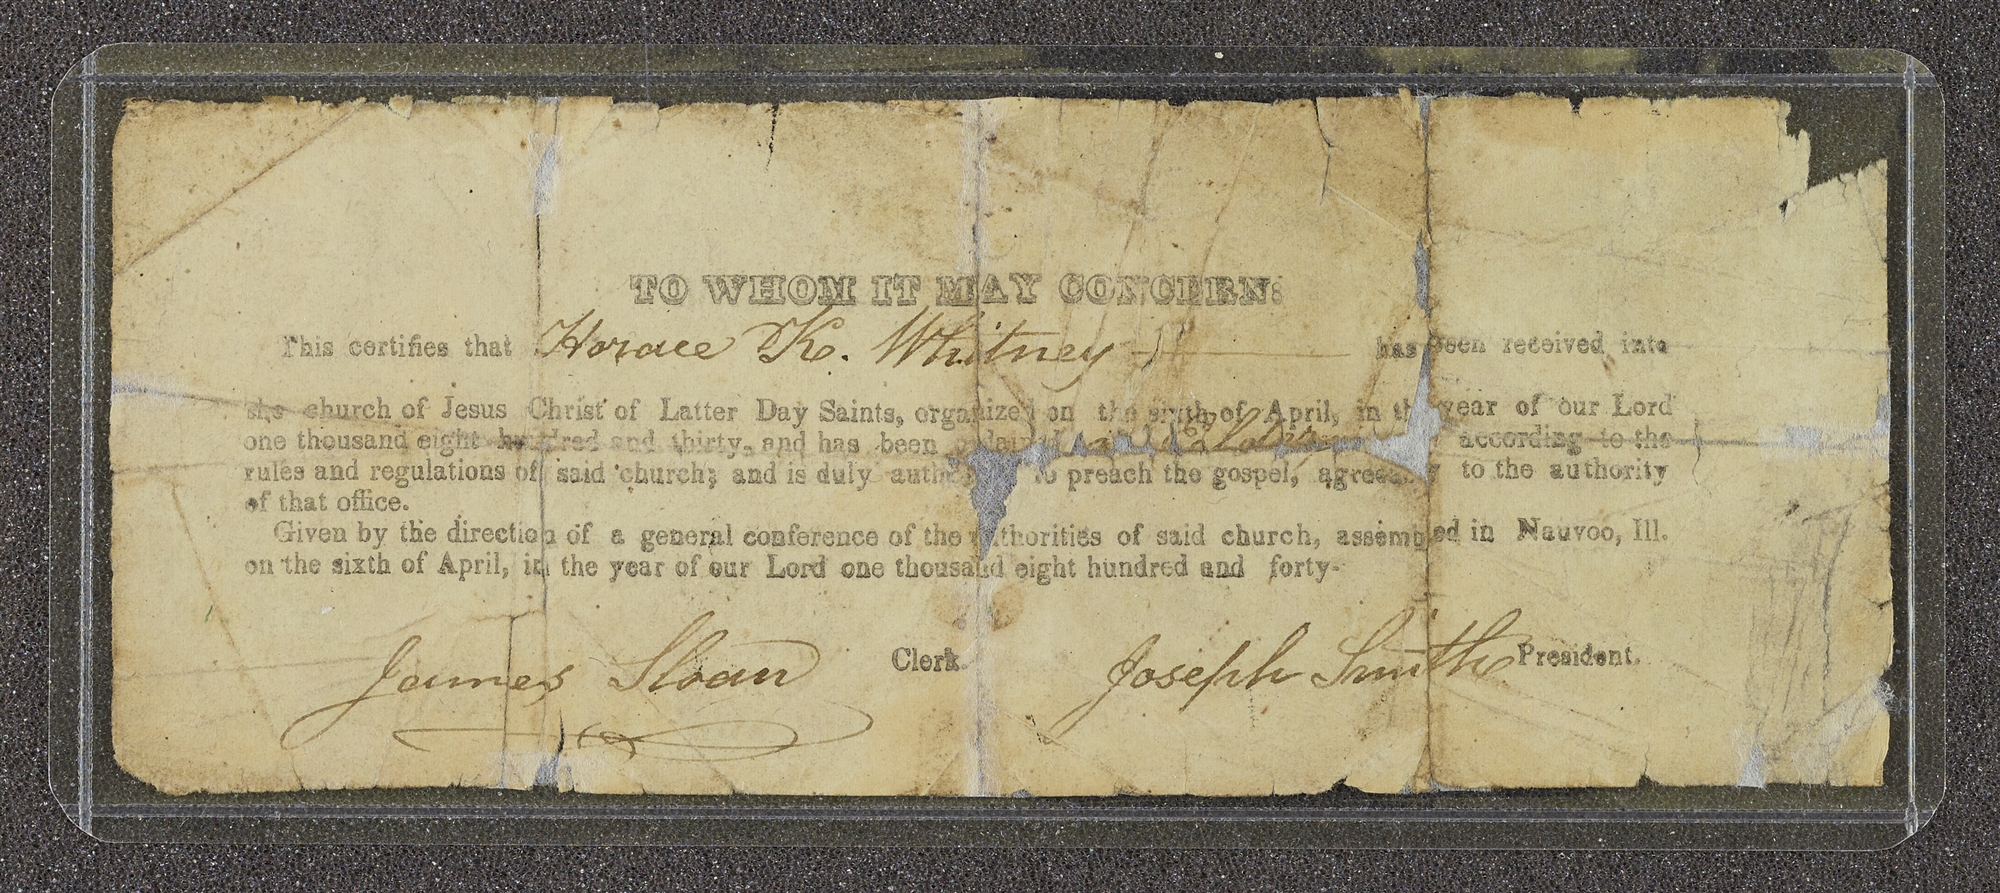 TO WHOM IT MAY CONCERN:
This certifies that Horace K. Whitney has been received into
the church of Jesus Christ of Latter Day Saints, organized on the sixth of April, in the year of our Lord
one thousand eight hundred and thirty, and has been ordained an Elder according to the
rules and regulations of said church; and is duly to preach the gospel, agreeably to the authority
of that office.
Given by the direction of a general conference of the authorities of said church, assembled in Nauvoo, Ill.
on the sixth of April, in the year of our Lord one thousand eight hundred and forty-
James Sloan Clerk. Joseph Smith President.